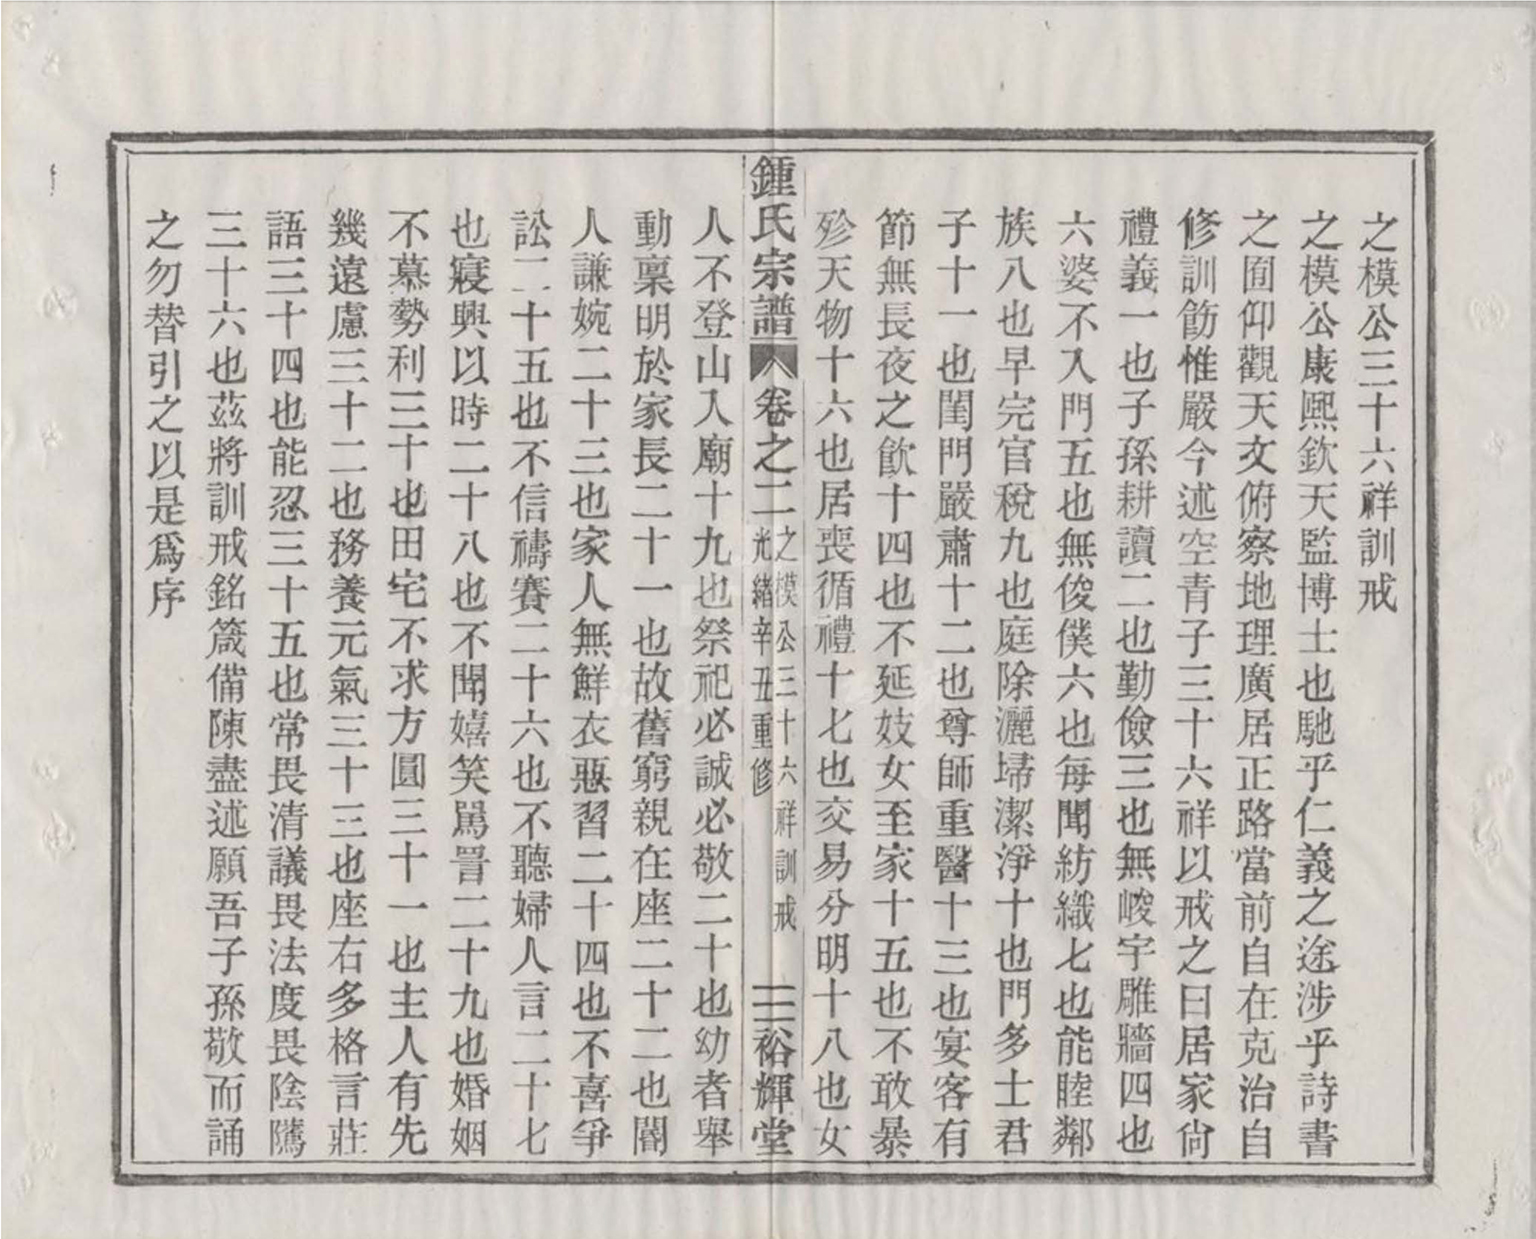 之模公三十六祥訓戒
之模公康熈欽天監博士也馳乎仁義之途涉乎詩書
之囿仰觀天文俯察地理廣居正路當前自在克治自
修訓飭惟嚴今述空青子三十六祥以戒之曰居家尙
禮義一也子孫耕讀二也勤儉三也無峻宇雕牆四也
六婆不入門五也無俊僕六也每聞紡織七也能睦鄰
族八也早完官稅九也庭除灑埽潔淨十也門多士君
子十一也閨門嚴肅十二也尊師重醫十三也宴客有
節無長夜之飮十四也不延妓女至家十五也不敢暴
殄天物十六也居喪循禮十七也交易分明十八也女
鍾氏宗譜 卷之二 之模公三十六祥訓戒 光緒辛丑重修 三 裕輝堂
人不登山入廟十九也祭祀必誠必敬二十也幼者舉
動稟明於家長二十一也故舊窮親在座二十二也閽
人謙婉二十三也家人無鮮衣惡習二十四也不喜爭
訟二十五也不信禱賽二十六也不聽婦人言二十七
也寢興以時二十八也不聞嬉笑罵詈二十九也婚姻
不慕勢利三十也田宅不求方圓三十一也主人有先
幾遠慮三十二也務養元氣三十三也座右多格言莊
語三十四也能忍三十五也常畏清議畏法度畏陰隲
三十六也茲將訓戒銘箴備陳盡述願吾子孫敬而誦
之勿替引之以是爲序